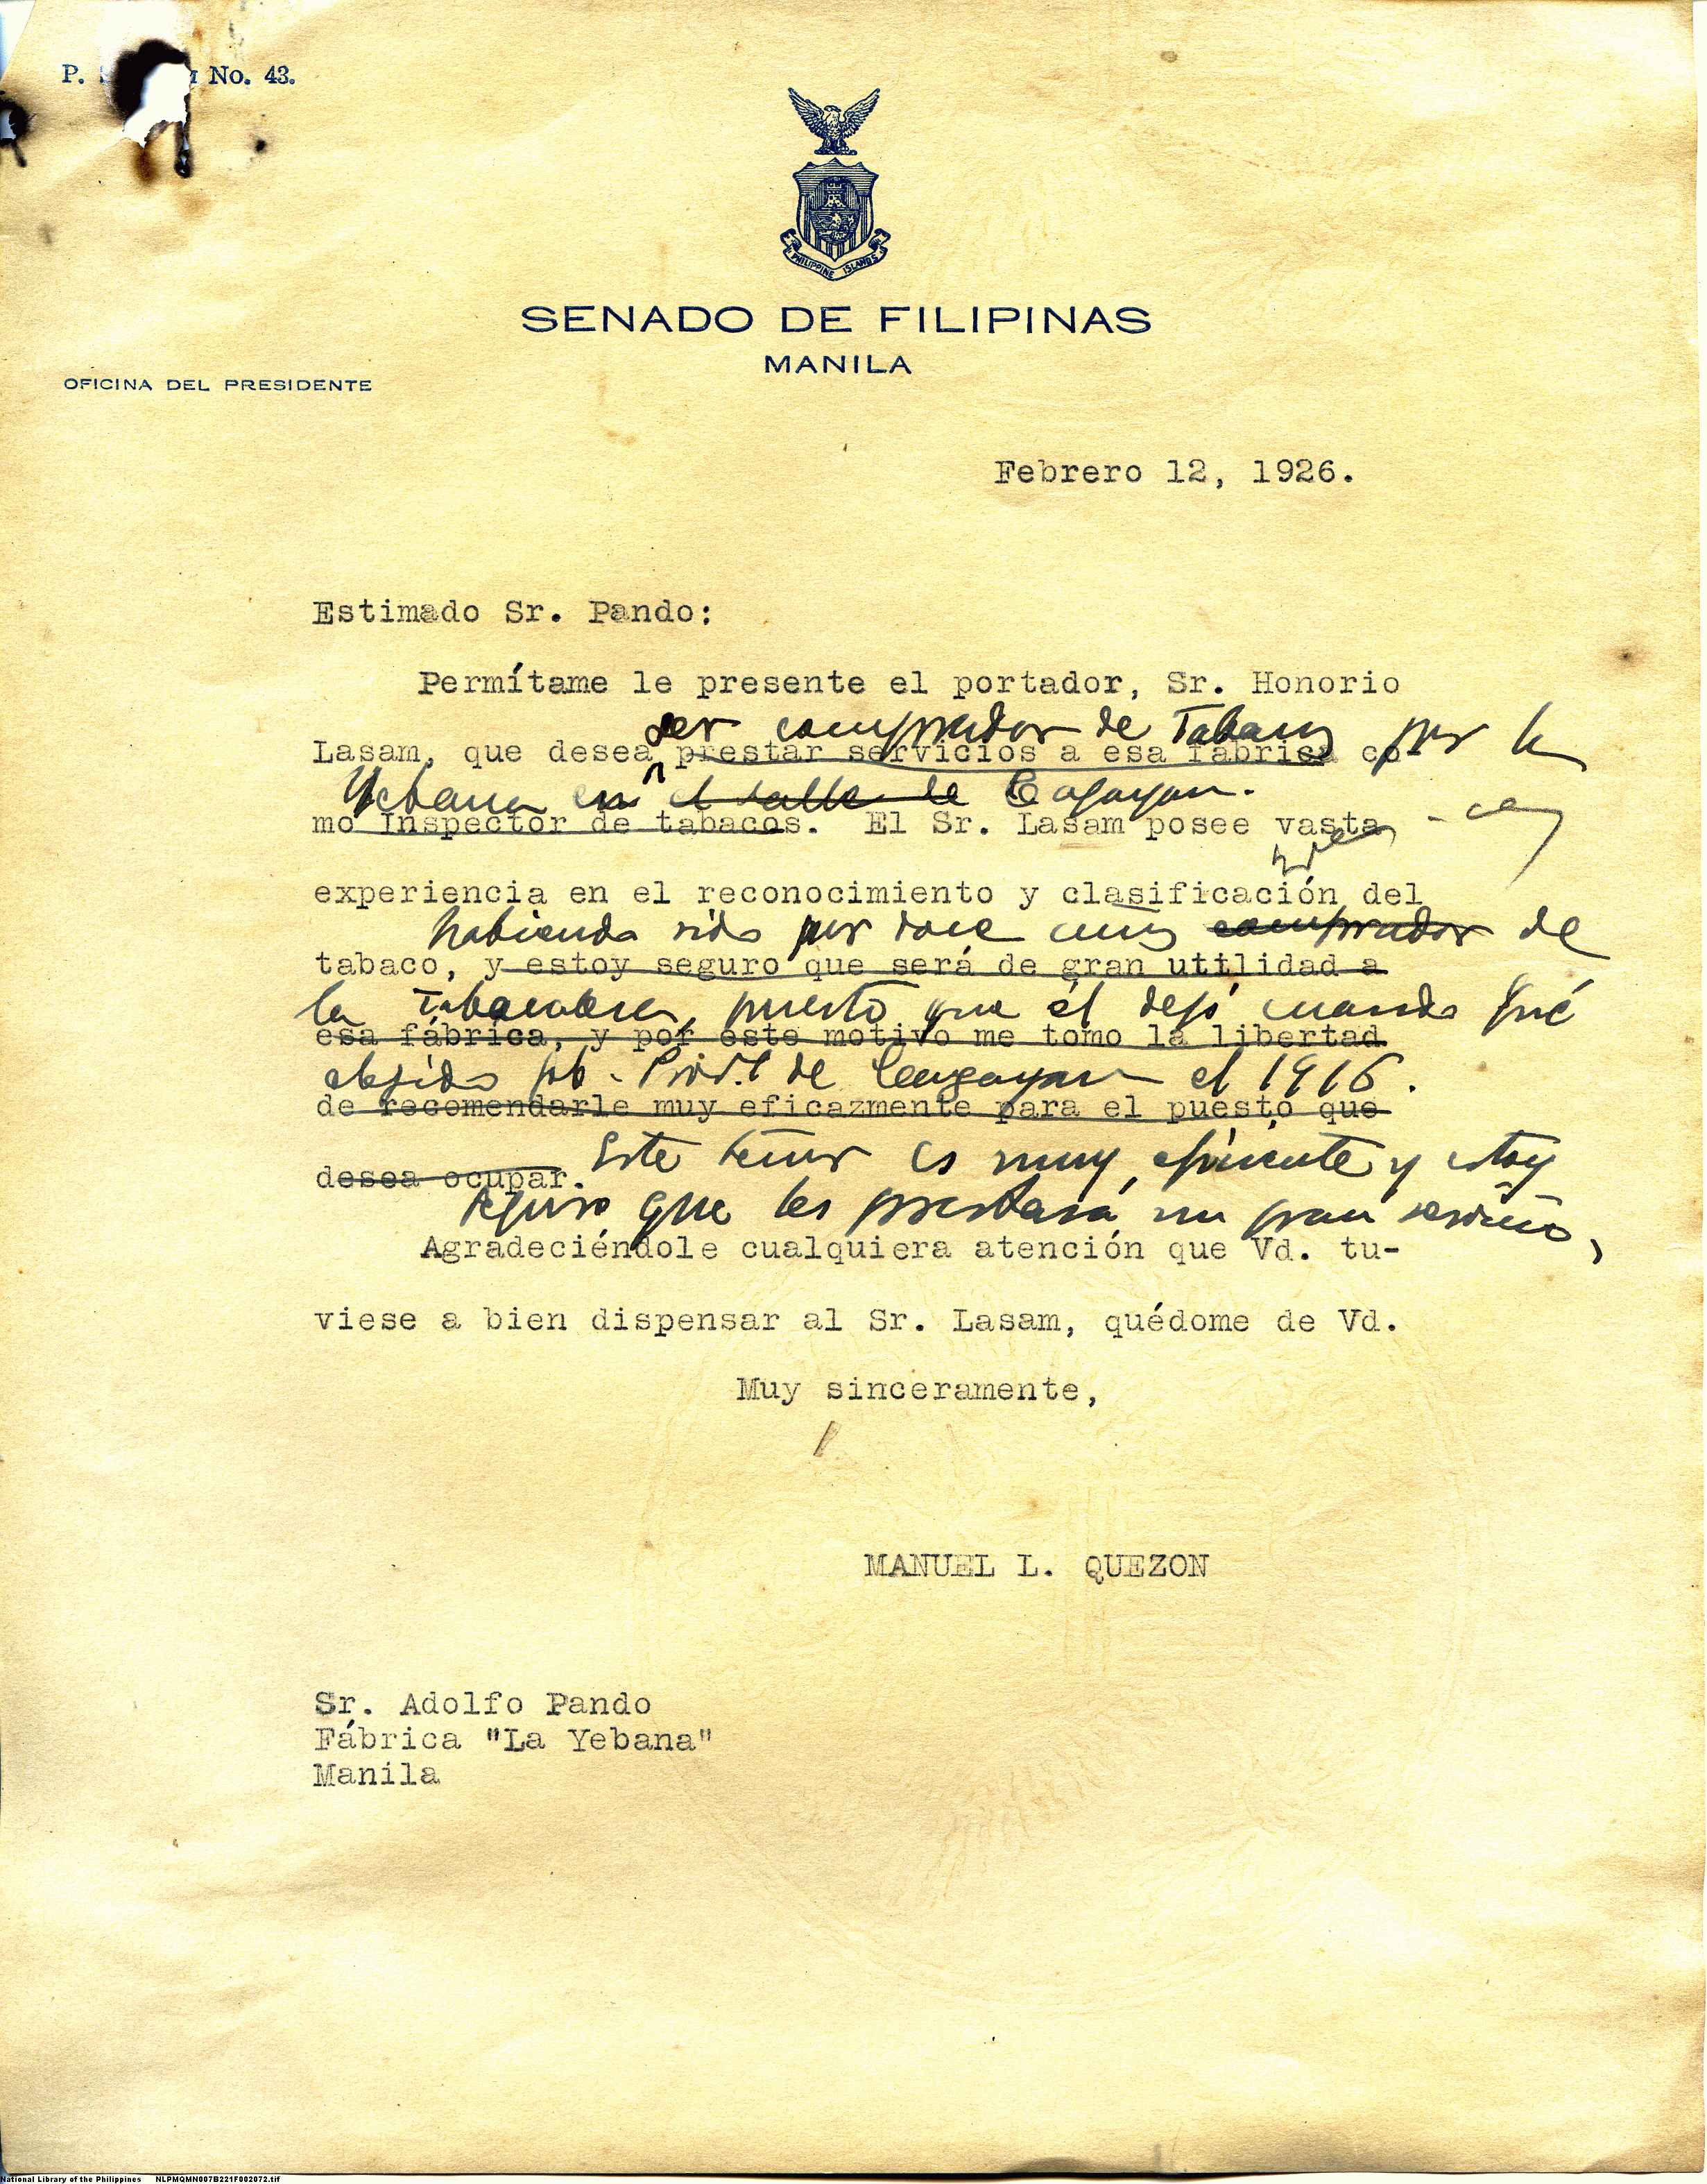 P. S. No. 43.
PHILIPPINE ISLANDS
SENADO DE FILIPINAS
MANILA
OFICINA DEL PRESIDENTE
Febrero 12, 1926.
Estimado Sr. Pando:
Permítame le presente el portador, Sr. Honorio
ser comprador de Tabaco por la
Lasam, que desea prestar servicios a esa fábrica co-
Yebana en el valle de Cagayan.
mo Inspector de tabacos. El Sr. Lasam posee vasta
experiencia en el reconocimiento y clasificación del
habiendo sido por doce años comprador de
tabaco, y estoy seguro que será de gran utilidad a
la Tabacalera, puesto que él dejó cuando fué
esa fábrica, y por este motivo me tomo la libertad
elegido Gob. Prov.l de Cagayan el 1916.
de recomendarle muy eficazmente para el puesto que
Este señor es muy eficiente y estoy
desea ocupar.
seguro que les prestará un gran servicio,
Agradeciéndole cualquiera atención que Vd. tu-
viese a bien dispensar al Sr. Lasam, quédome de Vd.
Muy sinceramente,
MANUEL L. QUEZON
Sr. Adolfo Pando
Fábrica "La Yebana"
Manila
National Library of the Philippines NLPMQMN007B221F002072.tif